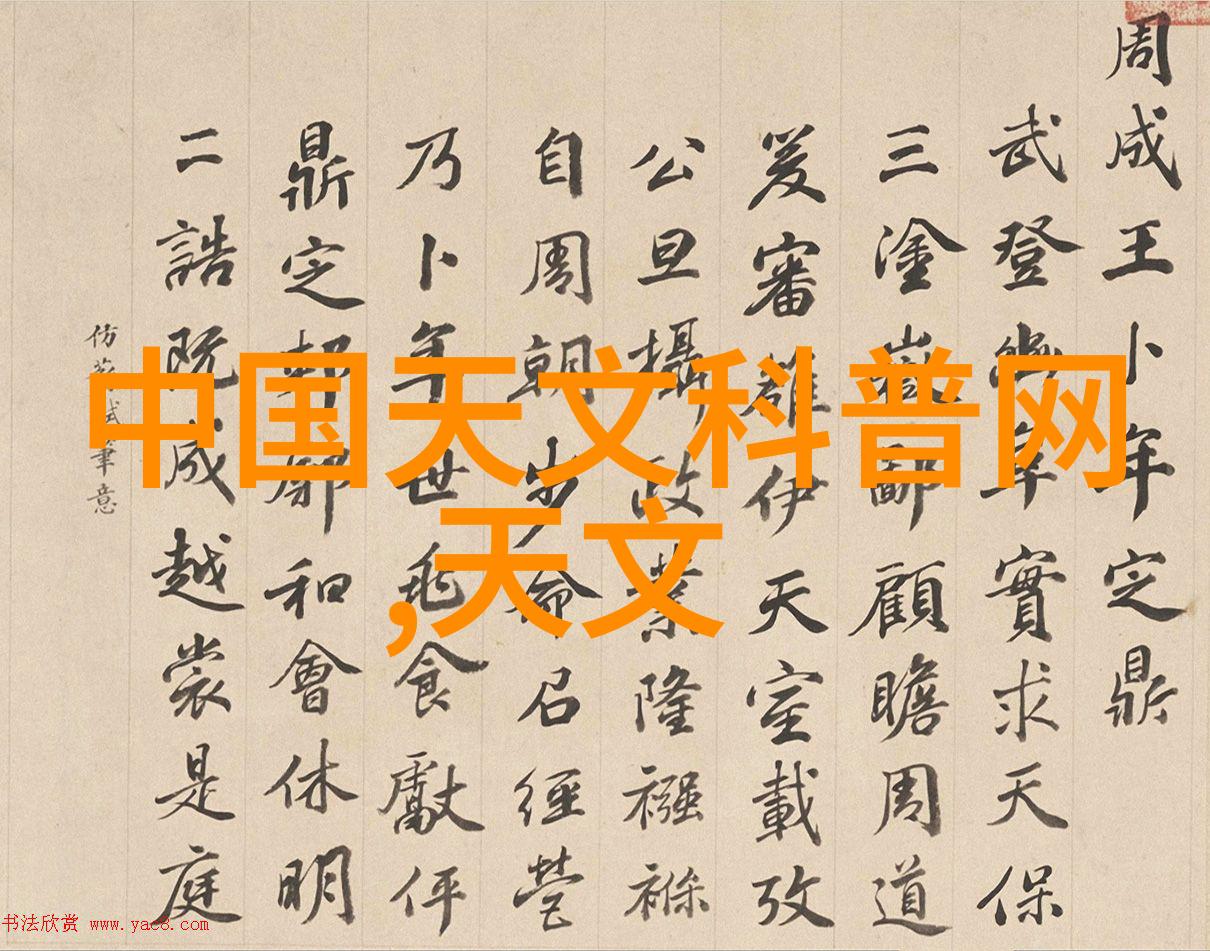 周成王卜年定鼎
武登豳阜實求天保
三塗嶽鄙顧瞻周道
爰審雒伊天室載攷
公旦攝政業隆襁褓
自周朝步命召經營
乃卜年世龜食獻伻
鼎定郟鄏和會休明
二誥既成越裳是庭
仿蘇軾筆意
中国天文科普网
,天文
书法欣赏 www.yac8.com